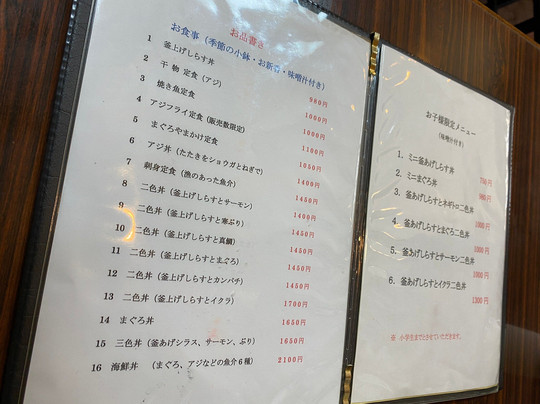 お品書き
お食事（季節の小鉢・お新香・味噌汁付き）
1 釜上げしらす丼 980円
2 干物 定食（アジ） 1050円
3 焼き魚定食 1000円
4 アジフライ定食（販売数限定） 1100円
5 まぐろやまかけ定食 1050円
6 アジ丼（たたきをショウガとねぎで） 1400円
7 刺身定食（漁のあった魚介） 1450円
8 二色丼（釜上げしらすとサーモン） 1400円
9 二色丼（釜上げしらすと寒ぶり） 1450円
10 二色丼（釜上げしらすと真鯛） 1450円
11 二色丼（釜上げしらすとまぐろ） 1450円
12 二色丼（釜上げしらすとカンパチ） 1450円
13 二色丼（釜上げしらすとイクラ） 1700円
14 まぐろ丼 1650円
15 三色丼（釜あげシラス、サーモン、ぶり） 1650円
16 海鮮丼 （まぐろ、アジなどの魚介6種） 2100円
お子様限定メニュー
（味噌汁付き）
1. ミニ釜あげしらす丼
2. ミニまぐろ丼
3. 釜あげしらすとネギトロ二色丼 1000円
4. 釜あげしらすとまぐろ二色丼 1000円
5. 釜あげしらすとサーモン二色丼 1000円
6. 釜あげしらすとイクラ二色丼 1300円
※ 小学生までとさせていただきます。